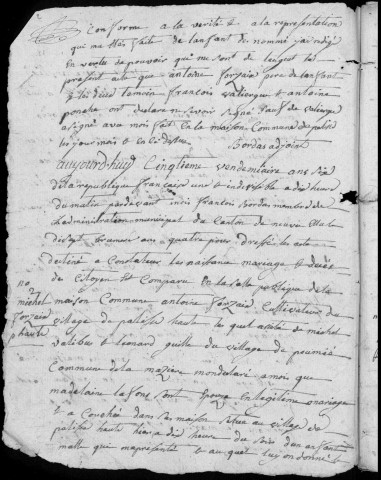 conforme a la verité & a la representation
qui ma été faite de lanfant de nommé jai redigé
en vertu de pouvoir qui me sont de legué le
present acte que antoine forzain pere de lanfant
& les deux temoin francois valiergue et antoine
ponche ont declaré ne savoir signé sauf de valiergue
a signé avec mois fait en la maison commune de palisse
les jour mois et an ci dessus
Bordas adjoint
aujourd'huy cinqtieme vendemiaire ans six
de la republique francaise une & indivisible a dix heure
du matin pardevant moi francois Bordas membre de
ladministration municipal de canton de neuvic elu le
dix brumer ans quatre pour dressé les acte
destiné a constater les naissans mariage & decés
de citoyen est comparu en la salle publique de la
maison commune antoine forzain cultivateur du
village de palisse haute le quel assisté de michel
valibus & leonard guille du village de
commune de la maziere a mois que
madelaine son epouze en legitime mariage
est a couchée dans sa maison située au village de
palisse haute hier a dix heure du soir d'un anfant
malle qui ma presenté & au quel luy on donné
no
michel
forzain
p haute